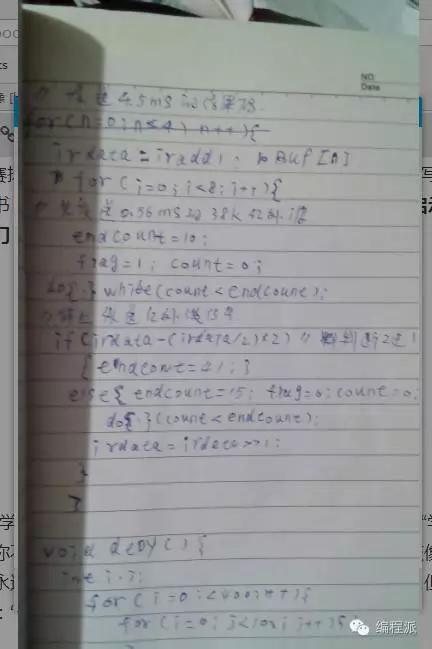 NO.
Date
// 发送4.5ms的结果码.
for(n=0;n≤4; n++){
irdata = iraddr. bBuf[n]
for(i=0;i<8;i++){
// 先发送0.56ms的38K红外波
endcount=10;
flag=1; count=0;
do{ } while(count<endcount);
// 停止发送红外信号
if(irdata-(irdata/2)*2)
{ endcont=41; }
else{ endcount=15; flag=0; count=0;
do{ }(count<endcount);
irdata=irdata>>1;
}
}
void delay() {
int i.j;
for(i=0;i<400;i++){
for(i=0; j<10; j++){
编程派